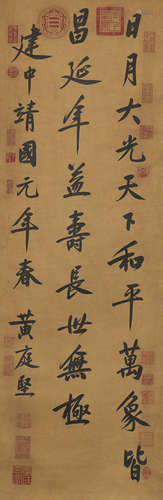 日月大光天下和平萬象皆
昌延年益壽長世無極
建中靖國元年春 黃庭堅